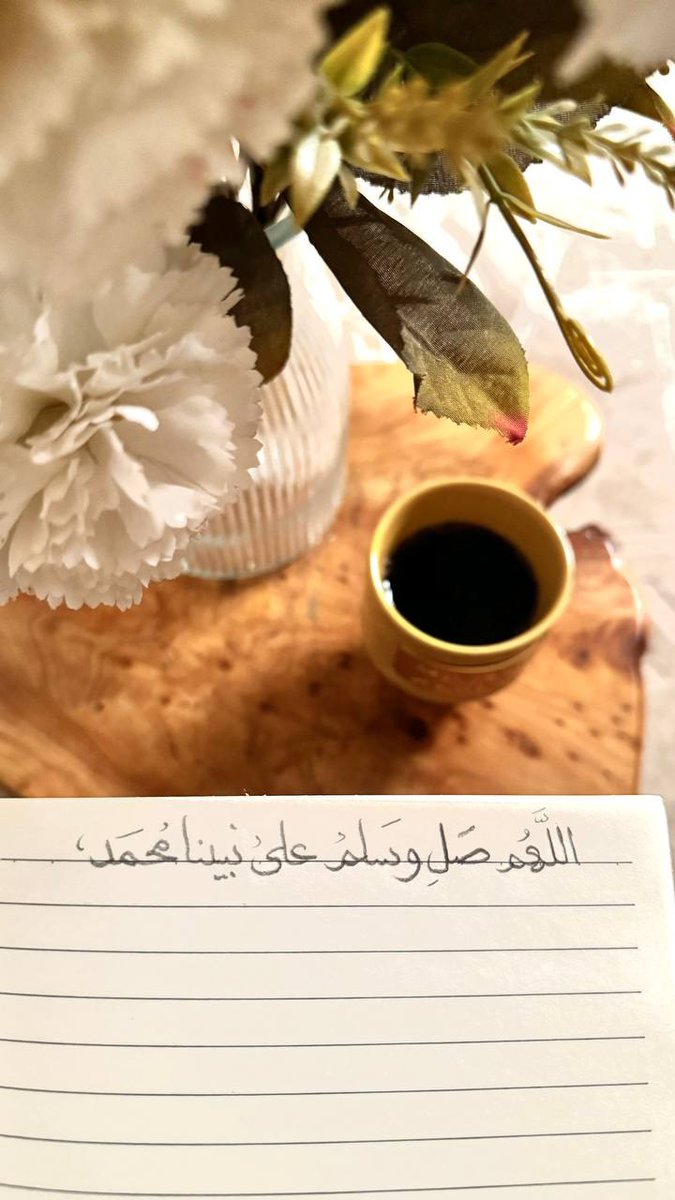 اللَّهُم صَلِ وسَلمْ علىْ نبينا مُحمَد،